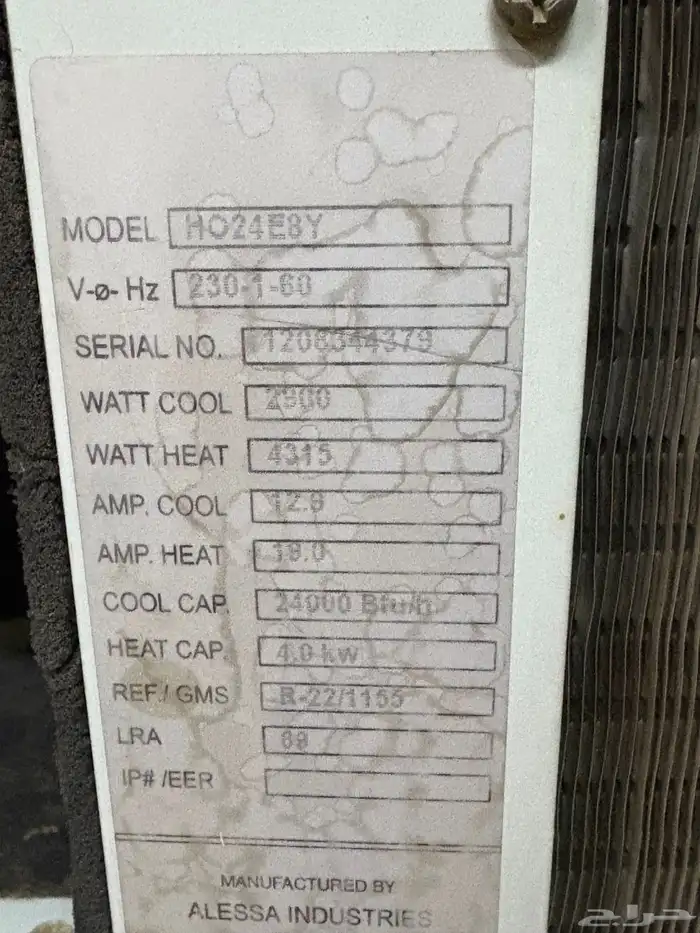 MODEL HO24E8Y
V-ø-Hz 230-1-60
SERIAL NO. 1208344379
WATT COOL 2900
WATT HEAT 4315
AMP. COOL 12.8
AMP. HEAT 19.0
COOL CAP. 24000 Btu/h
HEAT CAP. 4.0 kw
REF./ GMS R-22/1155
LRA 69
IP# /EER
MANUFACTURED BY
ALESSA INDUSTRIES
حراج